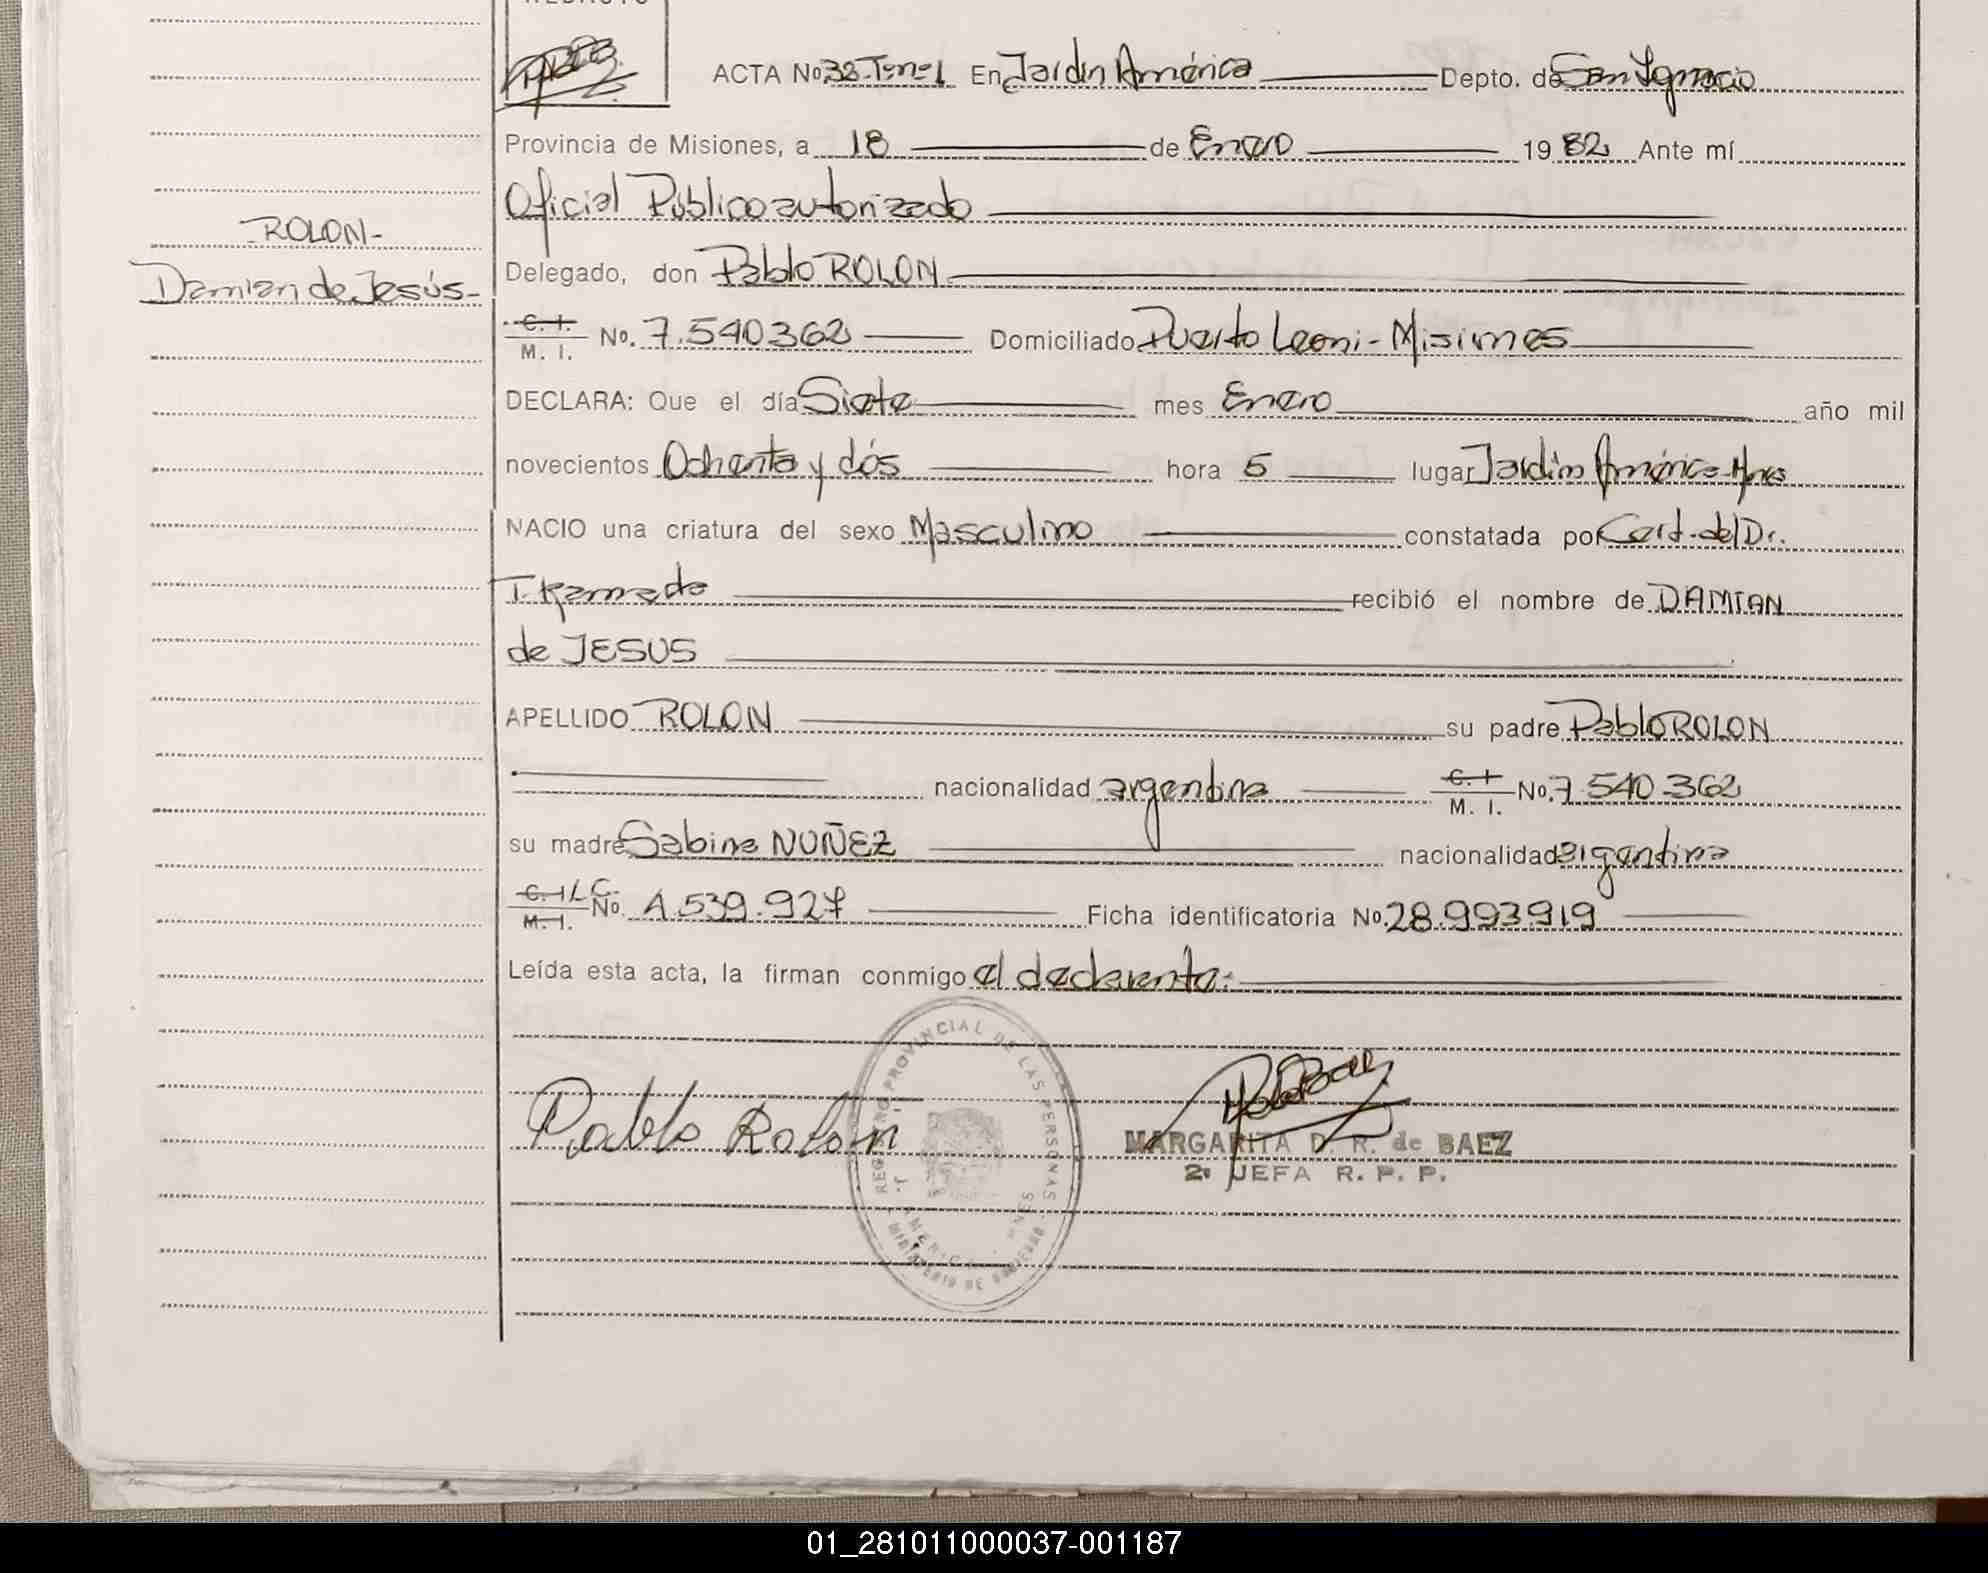 REDACTO
ACTA No 38-Tomo 1 En Jardín América Depto. de San Ignacio
Provincia de Misiones, a 18 de Enero 19 82 Ante mí
Oficial Público autorizado
ROLON-
Damian de Jesús-
Delegado, don Pablo ROLON
C. I. M. I. No. 7.540362 Domiciliado Puerto Leoni - Misiones
DECLARA: Que el día Siete mes Enero año mil
novecientos Ochenta y dós hora 5 lugar Jardín América-Mnes
NACIO una criatura del sexo Masculino constatada por Cert. del Dr.
T. Kamada recibió el nombre de DAMIAN
de JESUS
APELLIDO ROLON su padre Pablo ROLON
nacionalidad argentina C. I M. I. No. 7.540.362
su madre Sabina NUÑEZ nacionalidad argentina
C. I L C. M. I. No. 4.539.927 Ficha identificatoria No. 28.993.919
Leída esta acta, la firman conmigo el declarante:
Pablo Rolon
REGISTRO PROVINCIAL DE LAS PERSONAS
J. AMERICA - MNES
MINISTERIO DE GOBIERNO
MARGARITA D. R. de BAEZ
2ª JEFA R. P. P.
01_281011000037-001187